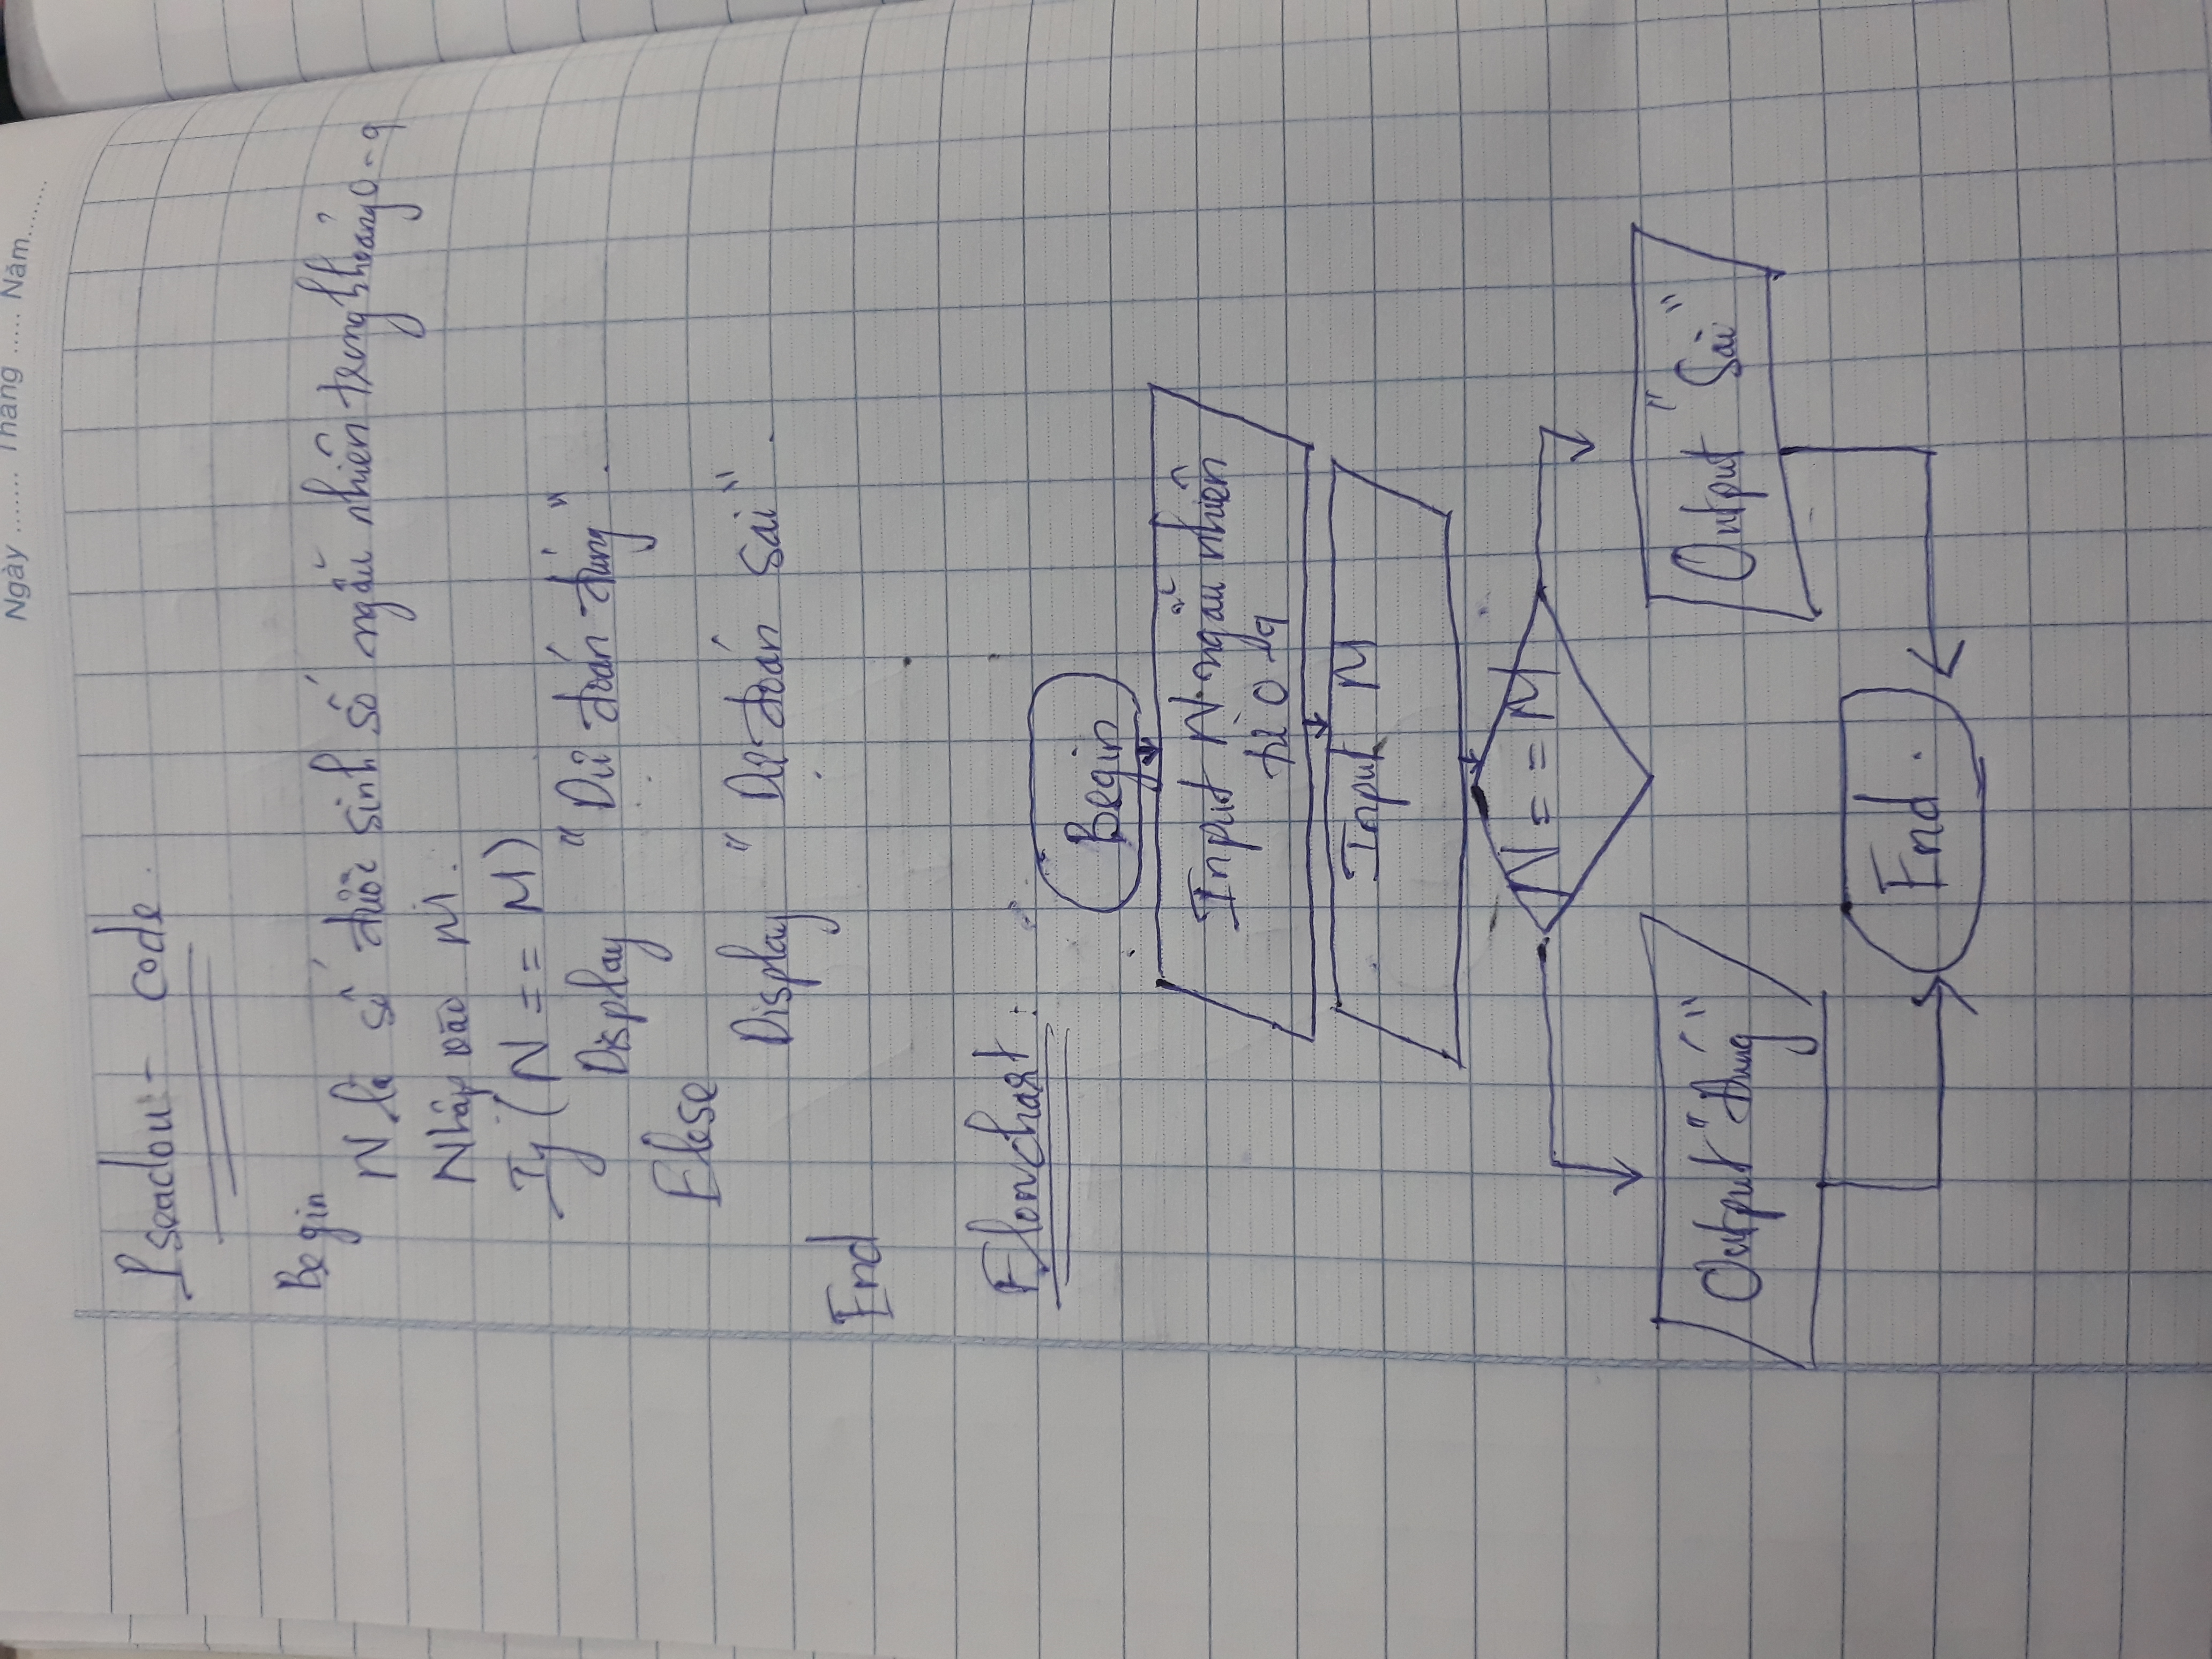 Ngày ....... Tháng ..... Năm........
Pseadou - code.
Begin
N là số được sinh số ngẫu nhiên trong khoảng 0 - 9
Nhập vào M.
If (N == M)
Display "Dự đoán đúng".
Else
Display "Dự đoán sai".
End
Flowchart:
Begin
Input N ngẫu nhiên
từ 0 - 9
Input M
N == M
Output "đúng"
Output "Sai"
End.